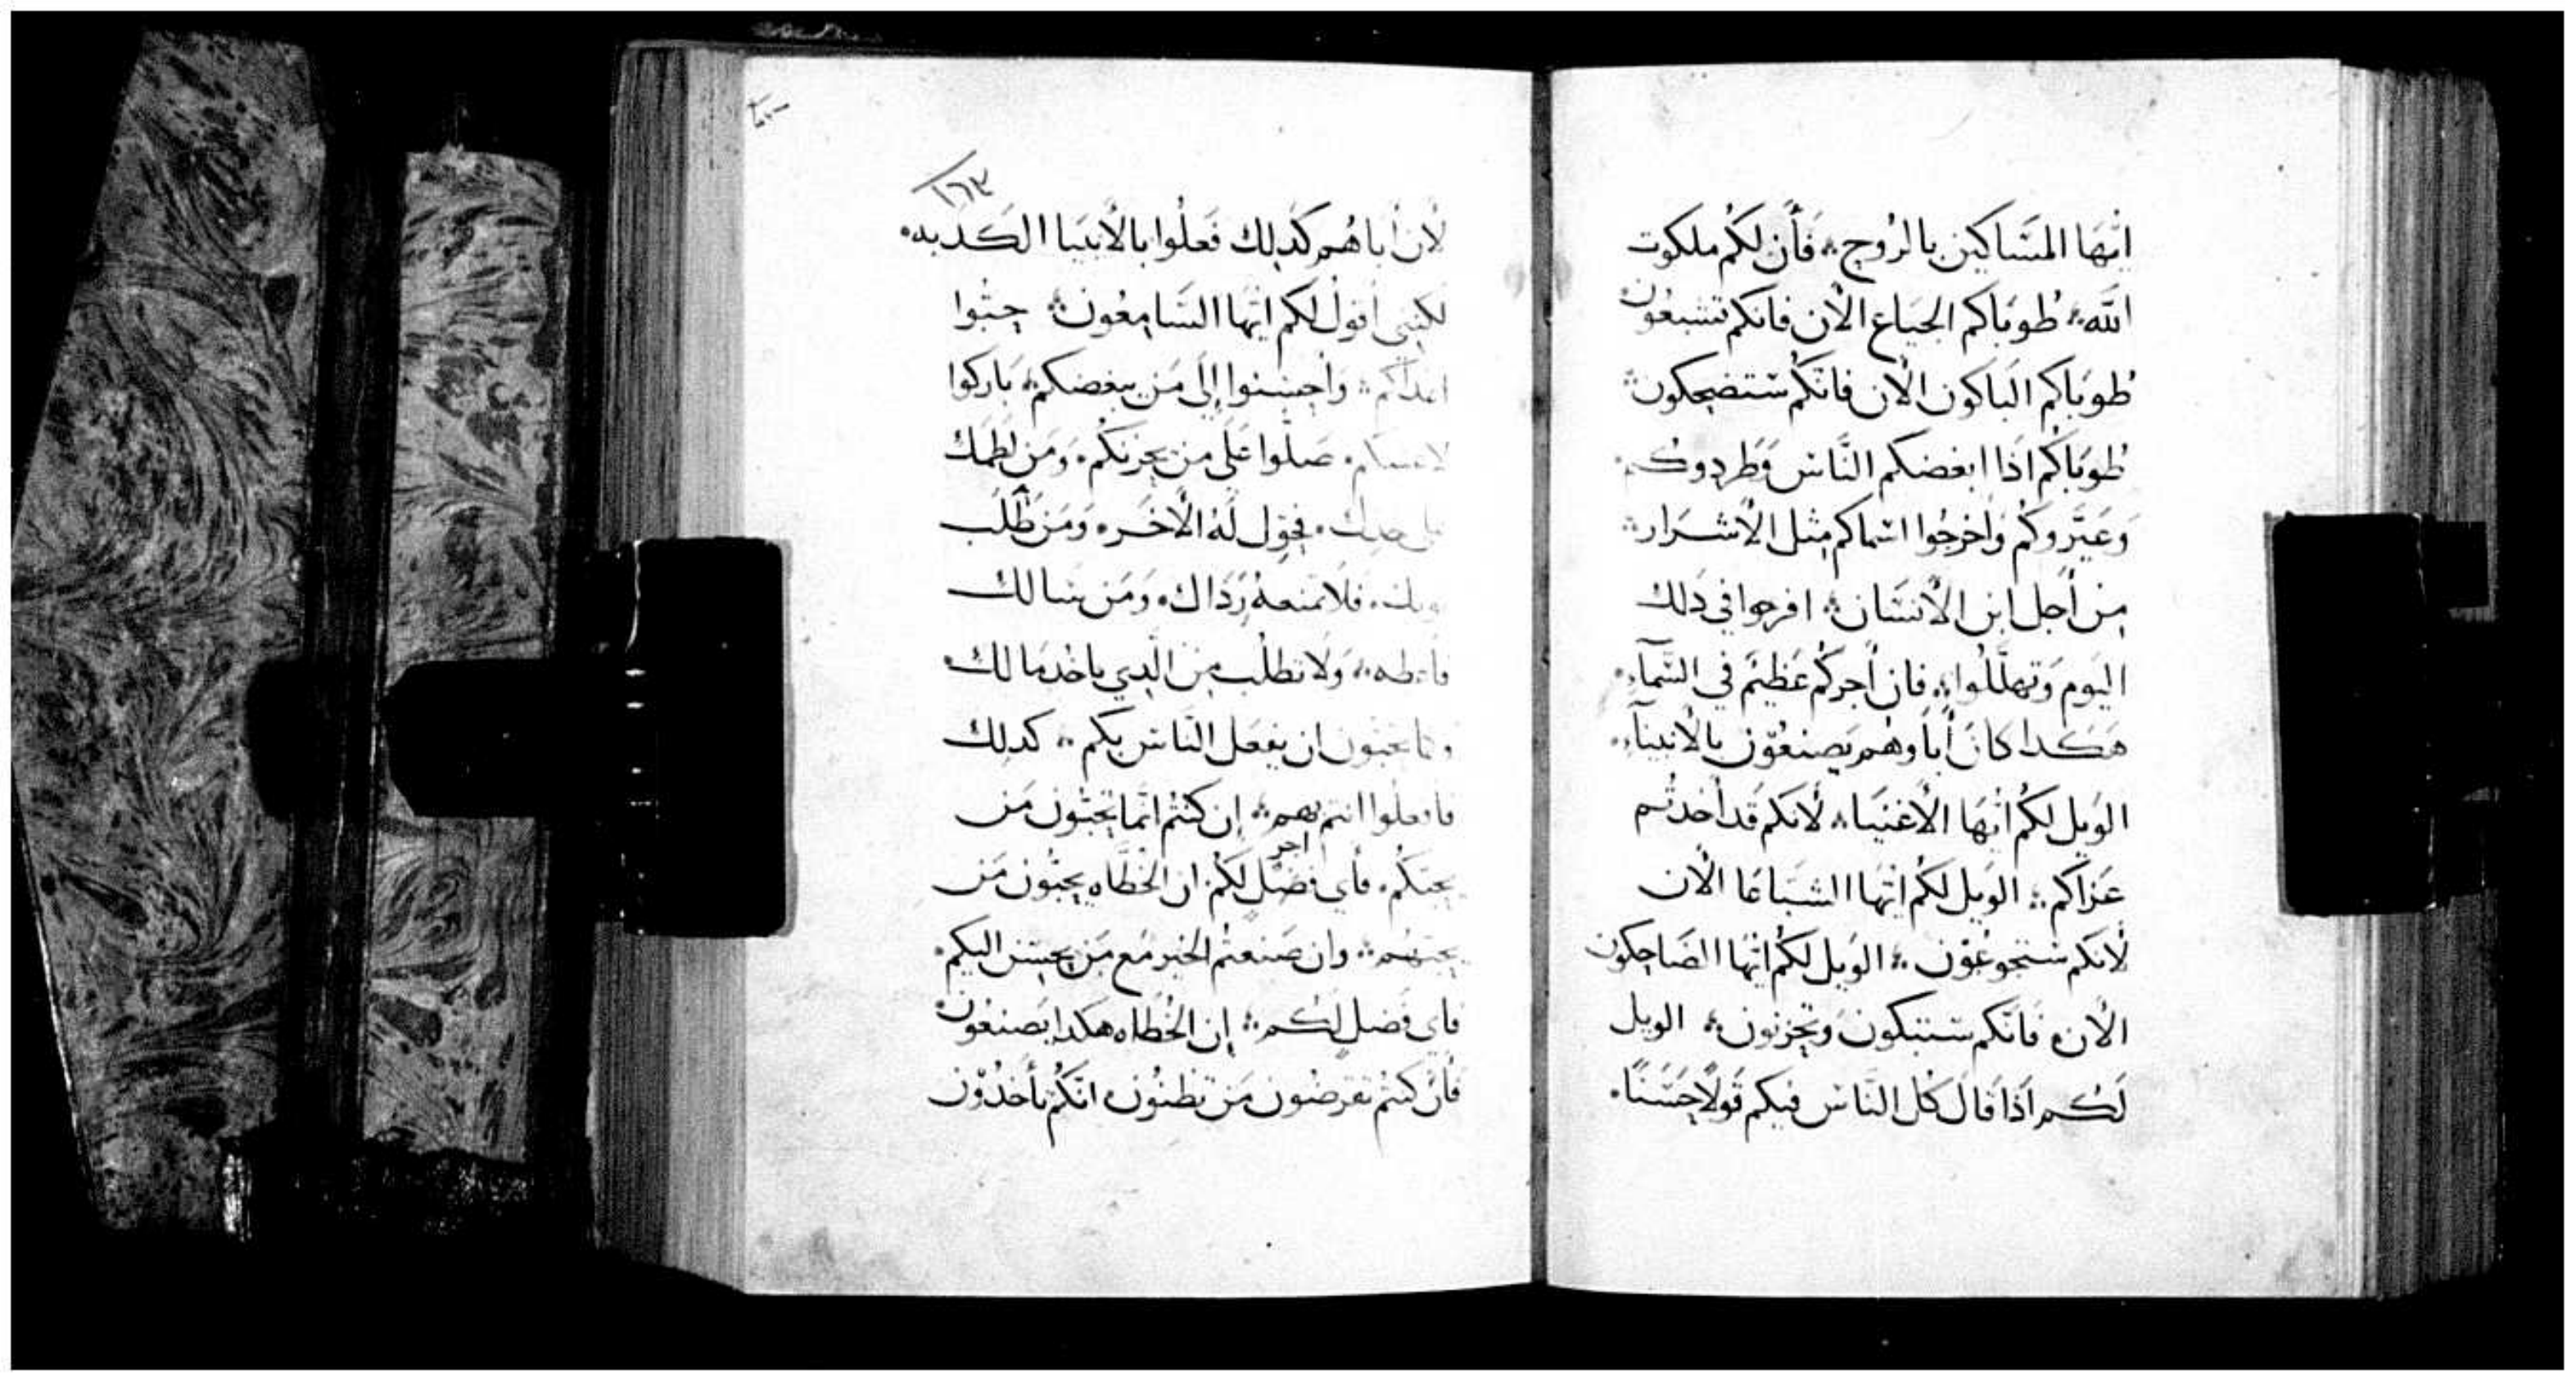 ايُّهَا المسَاكين بالرُوح فَأن لكُم ملكوت
الله طُوبَاكم الجيَاع الأن فانكم تشبعُون
طوبَاكم البَاكون الأن فانكُم ستضحكون
طُوبَاكُم اذَا ابغضكم النَّاس وَطردوكم
وَعَيَّروكُم وَاخرجُوا اسماكم مثل الأشرَار
من أجل ابن الأنسَان افرحوا في دَلك
اليَوم وَتهلَّلُوا فإن أجركُم عَظيمٌ في السَّمآء
هَكدا كانَ أباوهُم يصنعُون بالأنبيآء
الوَيل لكُم ايُّهَا الأغنيَا لأنكم قَد أخدتُم
عَزاكم الويل لكُم ايُّها الشبَاعَا الأن
لأنكم ستجوعُون الوَيل لكُم ايُّها الضَاحكون
الأن فَانَّكم ستبكون وَتحزنون الويل
لَكُم اَذَا قَالَ كل النَّاس فيكم قَولاً حَسَنًا
١٦٣
لأن أباهُم كدَلك فَعلُوا بالأنبيَا الكدبه
لكنِي أقولُ لكم ايُّها السَّامعُون حبُّوا
اعداكم وَأحسنوا إلَى مَن يبغضكم بَاركوا
صلُّوا عَلَى من يحزنكُم وَمَن لطَمكَ
فحَوِّل لَهُ الأخَره وَمَن طَلَب
فلَا تمنعهُ رِدَاك وَمَن سَالك
فاعطه وَلَا تطلُب مِن الَّدِي ياخُد مَا لك
وكما تحبون ان يفعَل النَّاس بكم كدلك
فافعلُوا انتم بهم إن كنتُم انَّما تحبُّون مَن
اجر
يحبكُم فأي فضلٍ لَكُم ان الخطَاه يحبُّون مَن
يحبهُم وان صَنعتُم الخير مَع مَن يحسن اليكم
فاي فَضلٍ لَكُم إن الخُطَاه هكدا يَصنعُون
فأن كنتُم تقرضُون مَن تظنُون انَّكُم تأخدُون